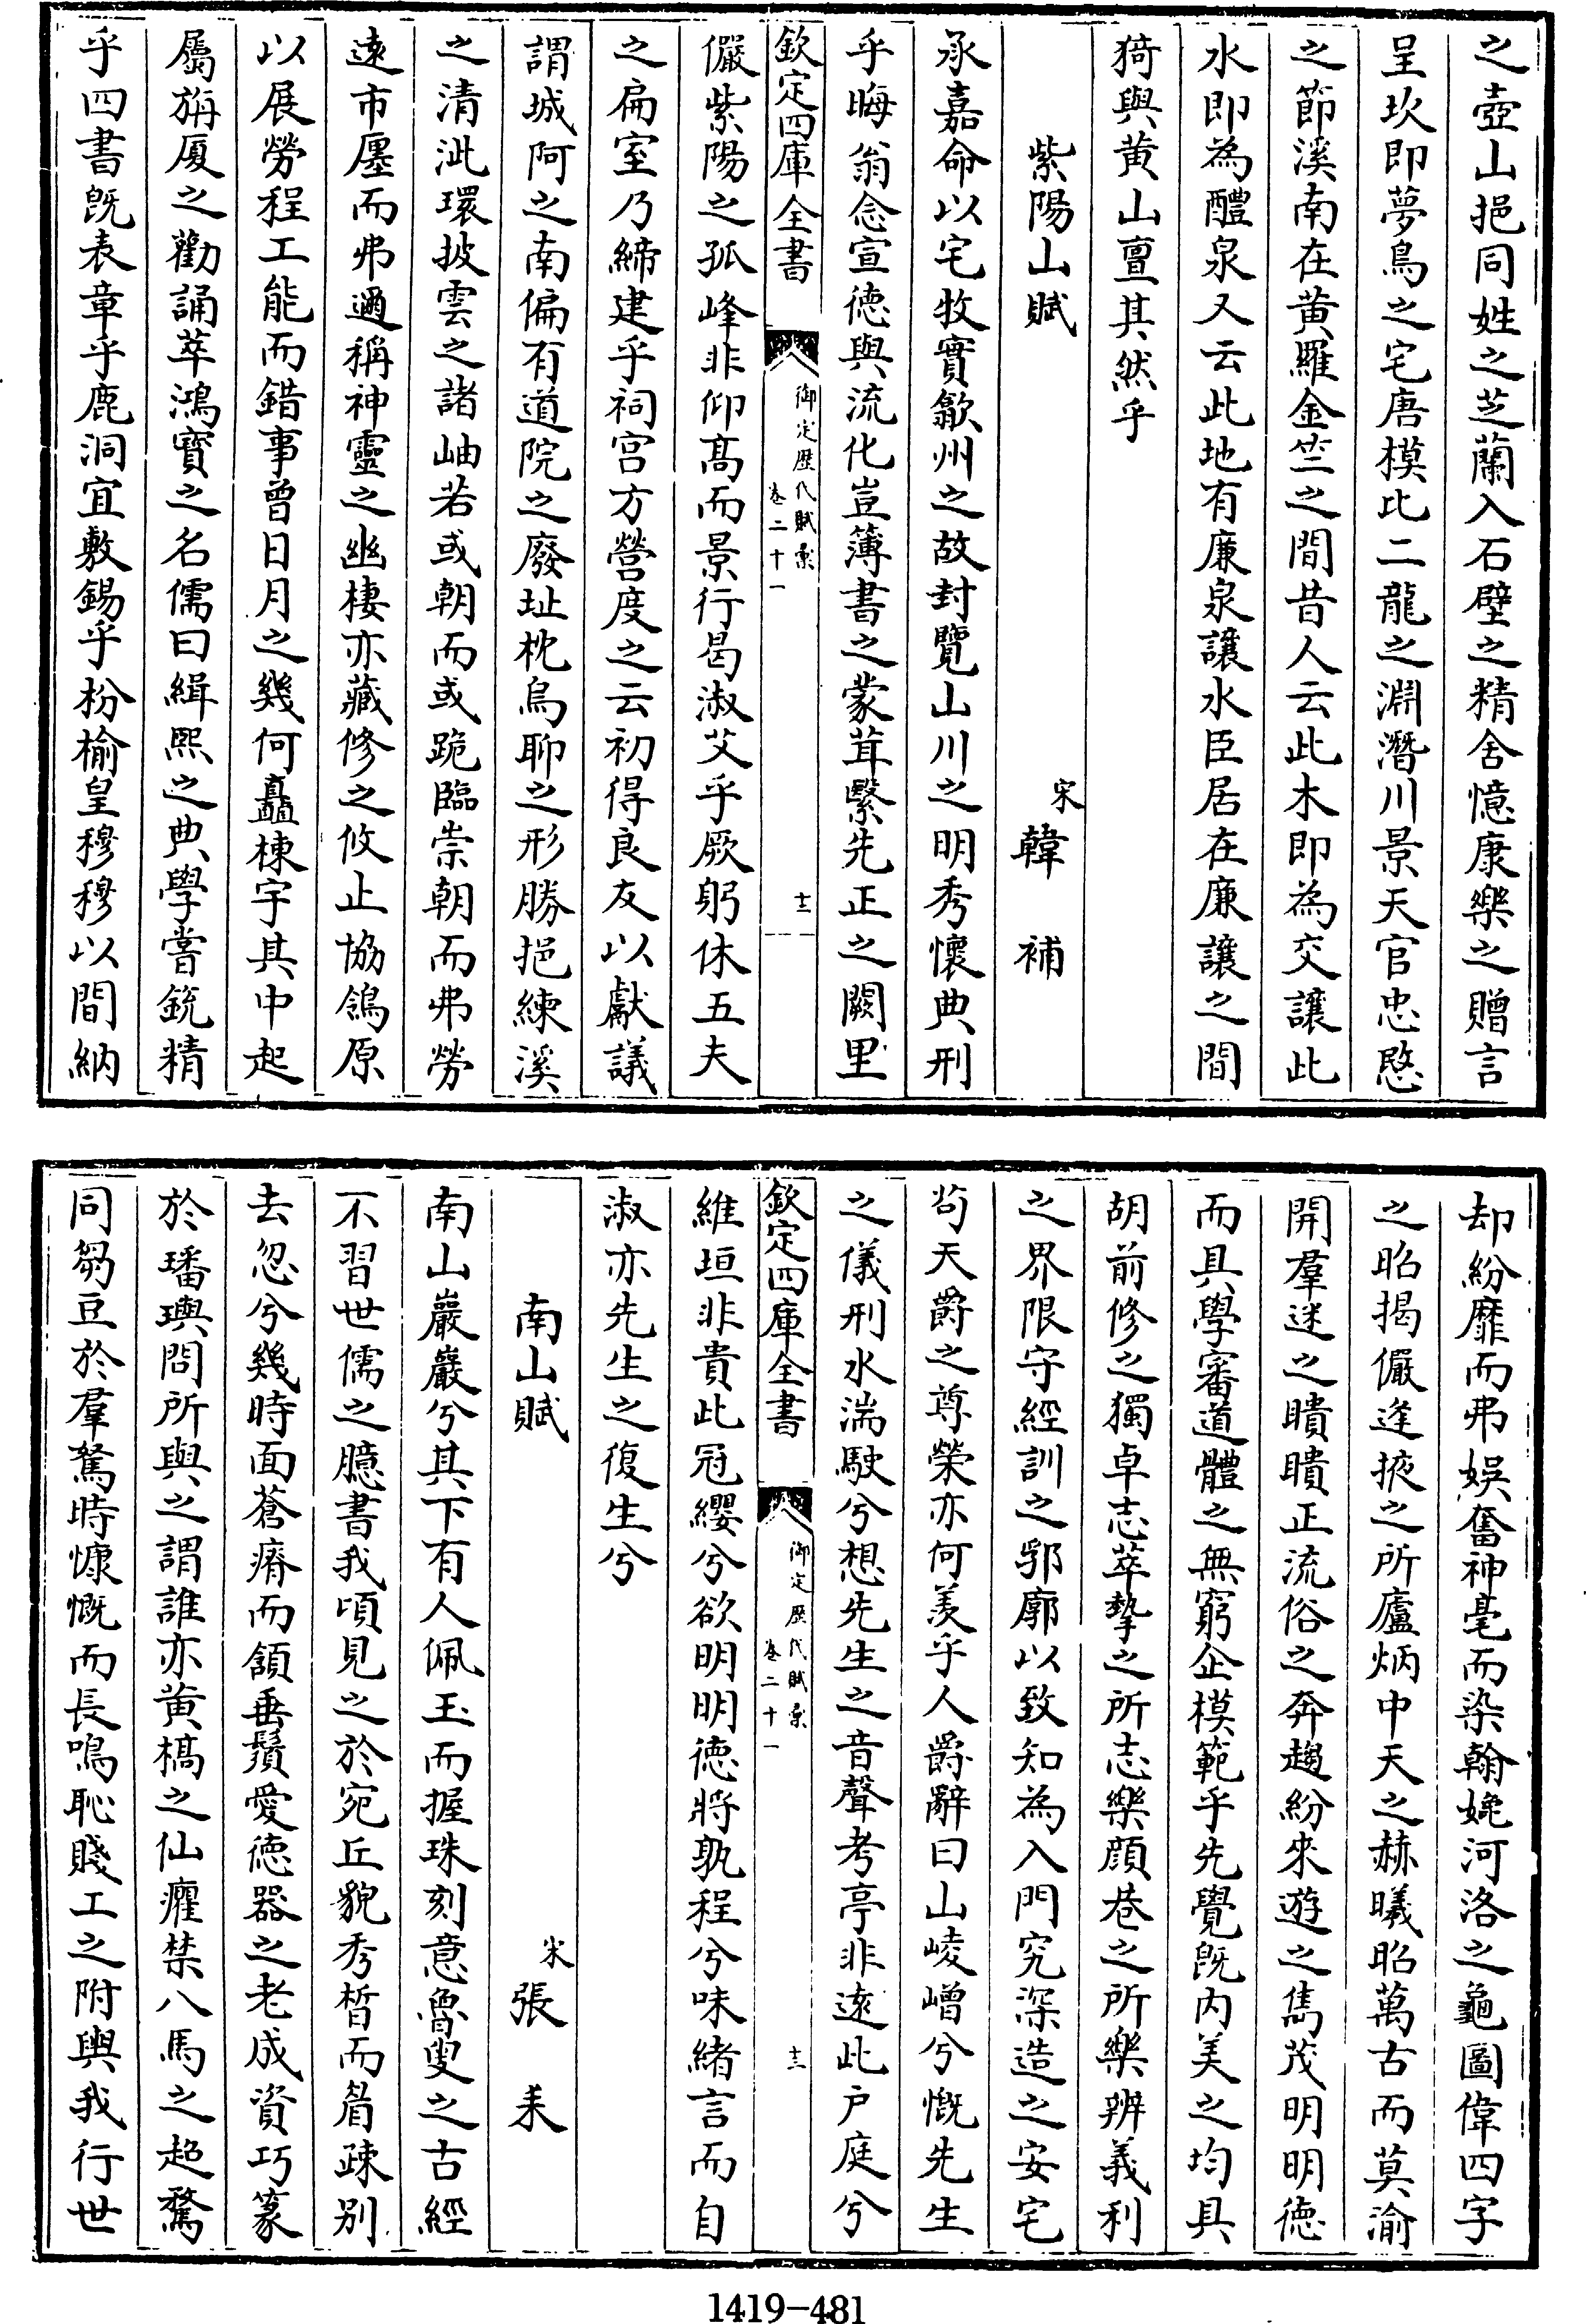 之壺山挹同姓之芝蘭入石壁之精舍憶康樂之贈言
呈坎即夢鳥之宅唐模比二龍之淵潛川景天官忠愍
之節溪南在黄羅金竺之間昔人云此木即為交讓此
水即為醴泉又云此地有廉泉讓水臣居在廉讓之間
猗與黄山亶其然乎
紫陽山賦
宋 韓補
承嘉命以宅牧實歙州之故封覽山川之明秀懷典刑
乎晦翁念宣徳與流化豈簿書之蒙茸繄先正之闕里
欽定四庫全書
御定歴代賦彙
卷二十一
十二
儼紫陽之孤峰非仰髙而景行曷淑艾乎厥躬休五夫
之扁室乃締建乎祠宫方營度之云初得良友以獻議
謂城阿之南偏有道院之廢址枕烏聊之形勝挹練溪
之清泚環披雲之諸岫若或朝而或跪臨崇朝而弗勞
逺市廛而弗邇稱神靈之幽棲亦藏修之攸止協鴒原
以展勞程工能而錯事曾日月之幾何矗棟宇其中起
屬旃厦之勸誦萃鴻寳之名儒曰緝熙之典學嘗銃精
乎四書旣表章乎鹿洞宜敷錫乎枌榆皇穆穆以間納
却紛靡而弗娛奮神毫而染翰娩河洛之龜圖偉四字
之昭揭儼逢掖之所廬炳中天之赫曦昭萬古而莫渝
開羣迷之瞶瞶正流俗之奔趨紛來遊之雋茂明明徳
而具學審道體之無窮企模範乎先覺旣内美之均具
胡前修之獨卓志萃摯之所志樂顔巷之所樂辨義利
之界限守經訓之郛廓以致知為入門究深造之安宅
茍天爵之尊榮亦何羨乎人爵辭曰山崚嶒兮慨先生
之儀刑水湍駛兮想先生之音聲考亭非逺此户庭兮
欽定四庫全書
御定歴代賦彙
卷二十一
十三
維垣非貴此冠纓兮欲明明徳將孰程兮味緒言而自
淑亦先生之復生兮
南山賦
宋 張耒
南山巖巖兮其下有人佩玉而握珠刻意魯叟之古經
不習世儒之臆書我頃見之於宛丘貌秀皙而眉疎别
去忽兮幾時面蒼瘠而頷垂鬚愛徳器之老成資巧篆
於璠璵問所與之謂誰亦黄槁之仙癯禁八馬之超騖
同芻豆於羣駑時慷慨而長鳴恥賤工之附輿我行世
1419-481